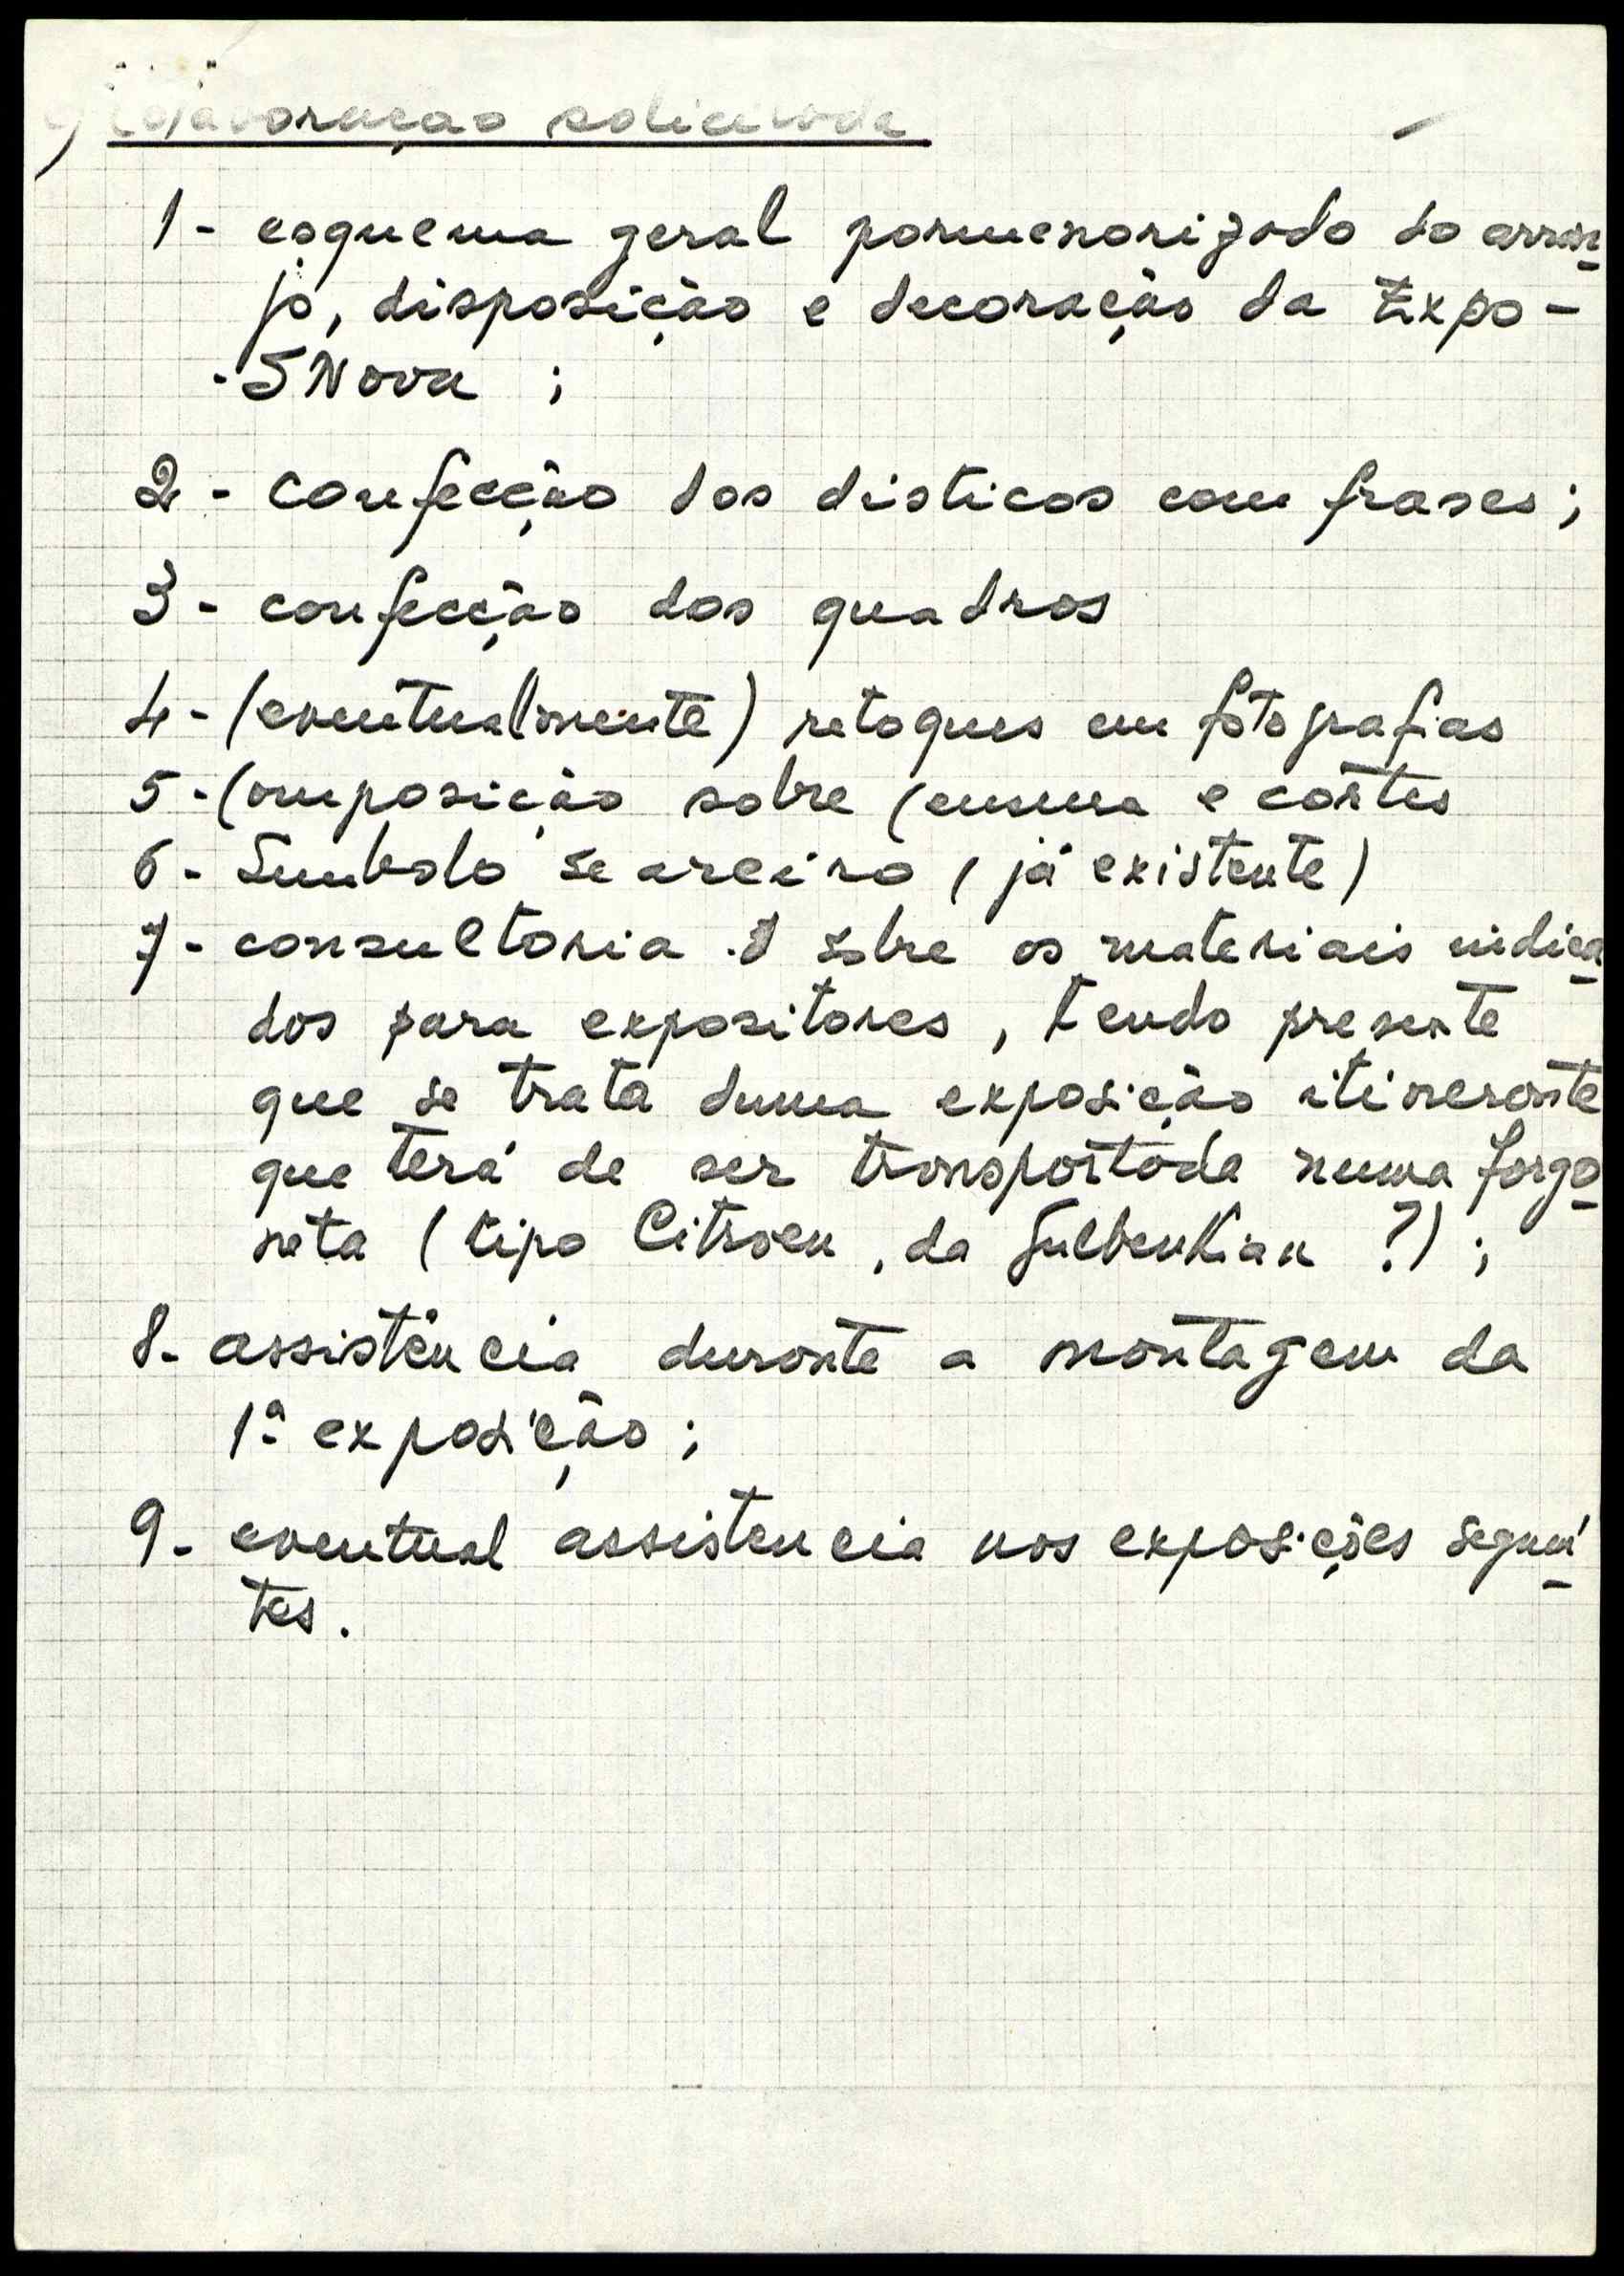 Colaboração solicitada
1 - esquema geral pormenorizado do arran
jo, disposição e decoração da Expo -
- SNova ;
2 - confecção dos disticos com frases ;
3 - confecção dos quadros
4 - (eventualmente) retoques em fotografias
5 - Composição sobre Censura e côrtes
6 - Símbolo Seareiro (já existente)
7 - consultoria sobre os materiais indica
dos para expositores, tendo presente
que se trata duma exposição itinerante
que terá de ser transportada numa forgo
neta (tipo Citroen, da Gulbenkian ?) ;
8 - assistência durante a montagem da
1ª exposição ;
9 - eventual assistencia nos exposições seguin
tes.